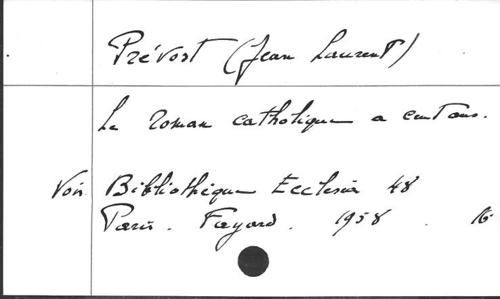 Prévost (Jean Laurent)
Le roman catholique a cent ans.
Voir Bibliothèque Ecclesia 48
Paris. Fayard. 1958. 16